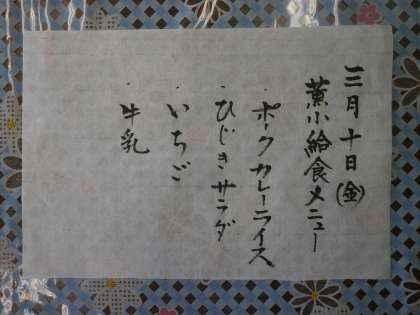 三月十日(金)
薫小給食メニュー
・ポークカレーライス
・ひじきサラダ
・いちご
・牛乳